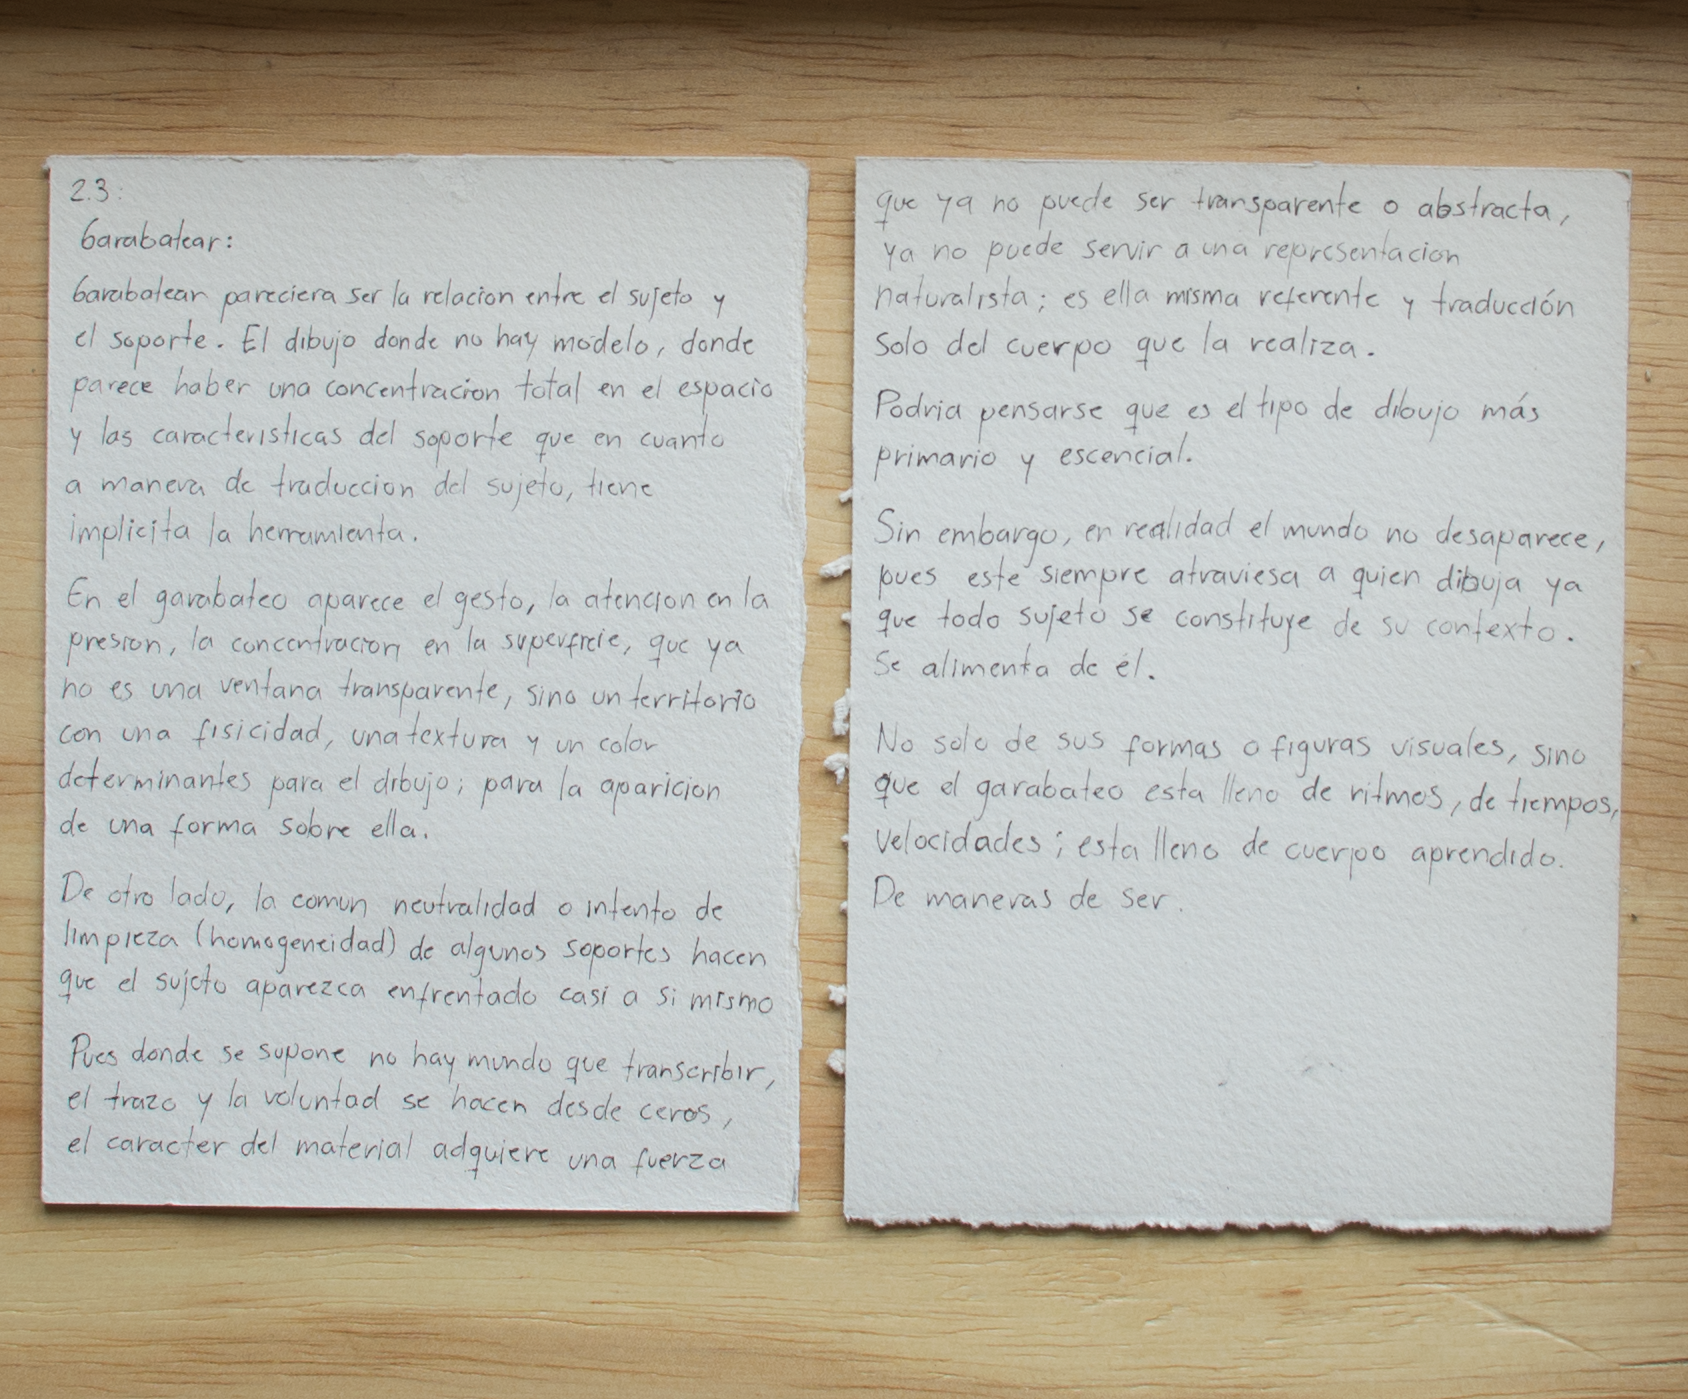 2.3:
Garabatear:
Garabatear pareciera ser la relacion entre el sujeto y
el soporte. El dibujo donde no hay modelo, donde
parece haber una concentracion total en el espacio
y las caracteristicas del soporte que en cuanto
a manera de traduccion del sujeto, tiene
implicita la herramienta.
En el garabateo aparece el gesto, la atencion en la
presion, la concentracion en la superficie, que ya
no es una ventana transparente, sino un territorio
con una fisicidad, una textura y un color
determinantes para el dibujo; para la aparicion
de una forma sobre ella.
De otro lado, la comun neutralidad o intento de
limpieza (homogeneidad) de algunos soportes hacen
que el sujeto aparezca enfrentado casi a si mismo
Pues donde se supone no hay mundo que transcribir,
el trazo y la voluntad se hacen desde ceros,
el caracter del material adquiere una fuerza
que ya no puede ser transparente o abstracta,
ya no puede servir a una representacion
naturalista; es ella misma referente y traducción
solo del cuerpo que la realiza.
Podria pensarse que es el tipo de dibujo más
primario y escencial.
Sin embargo, en realidad el mundo no desaparece,
pues este siempre atraviesa a quien dibuja ya
que todo sujeto se constituye de su contexto.
Se alimenta de él.
No solo de sus formas o figuras visuales, sino
que el garabateo esta lleno de ritmos, de tiempos,
velocidades; esta lleno de cuerpo aprendido.
De maneras de ser.